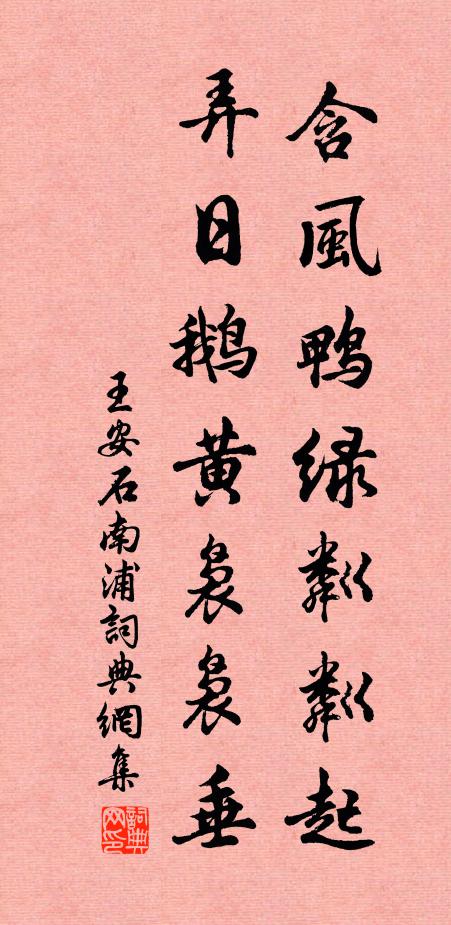 含風鴨绿粼粼起
弄日鹅黄裊裊垂
王安石南浦詞典網集
詞典网印